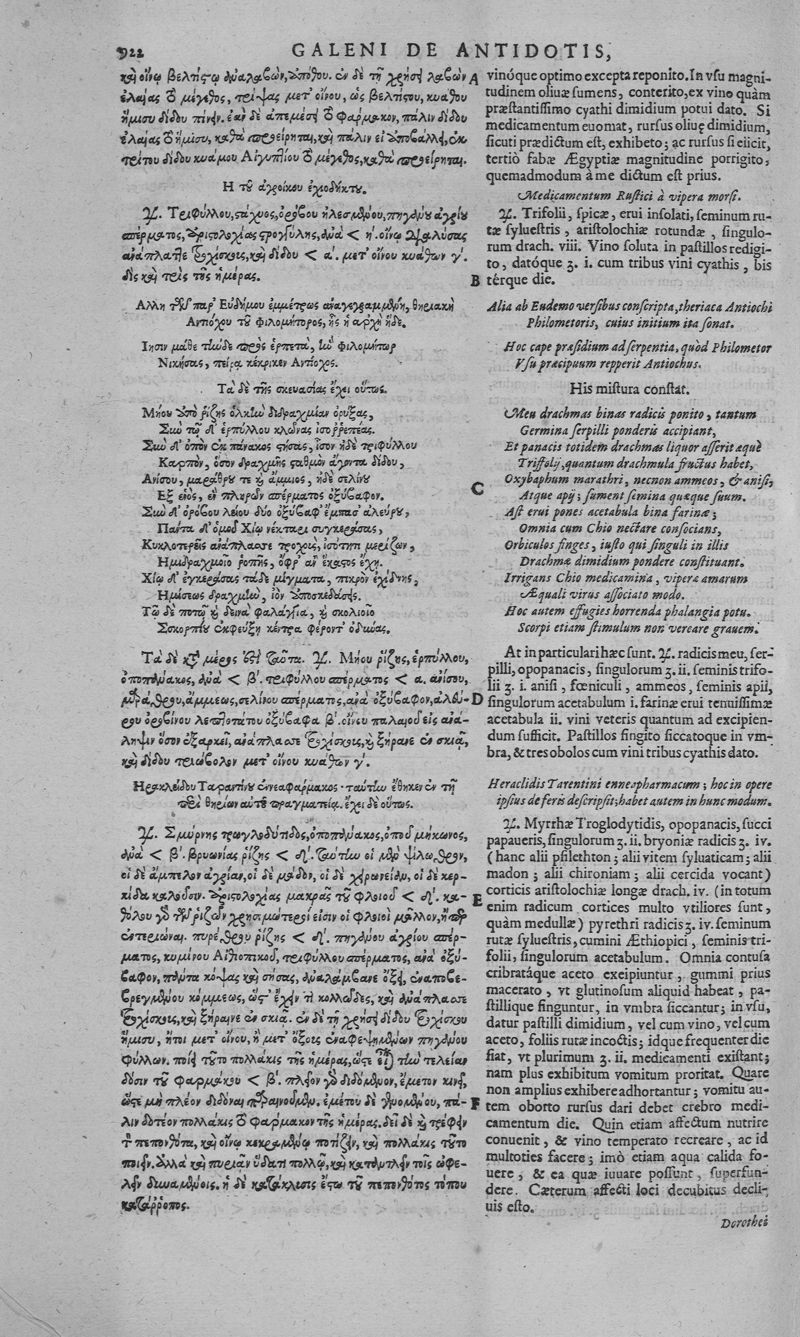 922
GALENI DE ANTIDOTIS,
καὶ οἴνῳ βελτίστῳ ἀναλαβὼν, ἀπόθου. ἐν δὲ τῇ χρήσει λαβὼν
ἐλαίας τὸ μέγεθος, τρίψας μετ' οἴνου, ὡς βελτίστου, κυάθου
ἥμισυ δίδου πίνειν. ἐὰν δὲ ἀπεμέσῃ τὸ φάρμακον, πάλιν δίδου
ἐλαίας τὸ ἥμισυ, καθὰ προείρηται, καὶ πάλιν εἰ ἀποβάλλει, ἐκ
τρίτου δίδου κυάμου Αἰγυπτίου τὸ μέγεθος, καθὰ προείρηται.
Ἡ τοῦ ἀγροίκου ἐχιοδήκτου.
♃. Τριφύλλου, στάχυος, ὀρόβου ἡλεσμένου, πηγάνου ἀγρίου
σπέρματος, ἀριστολοχίας στρογγύλης, ἀνὰ < η'. οἴνῳ διαλύσας
ἀνάπλαττε τροχίσκους, καὶ δίδου < α'. μετ' οἴνου κυάθων γ'.
δὶς καὶ τρὶς τῆς ἡμέρας.
Ἄλλη τῶν παρ' Εὐδήμου ἐμμέτρως ἀναγεγραμμένη, θηριακὴ
Ἀντιόχου τοῦ φιλομήτορος, ἧς ἡ ἀρχὴ ἥδε.
Ἴησιν μάθε τήνδε πρὸς ἑρπετὰ, ἣν φιλομήτωρ
Νικήσας, πείρᾳ κέκρικεν Ἀντίοχος.
Τὰ δὲ τῆς σκευασίας ἔχει οὕτως.
Μήου ἀπὸ ῥίζης ὁλκὴν διδραχμίαν ὀρύξας,
Σὺν τῷ δ' ἑρπύλλου κλῶνας ἰσορρεπέας.
Σὺν δ' ὀπὸν ἐκ πάνακος στήσας, ἴσον ἠδὲ τριφύλλου
Καρπὸν, ὅσον δραχμῆς σταθμὸν ἄγοντα δίδου,
Ἀνίσου, μαράθρου τε καὶ ἄμμιος, ἠδὲ σελίνου
Ἐξ ἑνὸς, εἷν πληρῶν σπέρματος ὀξύβαφον.
Σὺν δ' ὀρόβου λείου δύο ὀξύβαφ' ἔμπασ' ἀλεύρου,
Πάντα δ' ὁμοῦ Χίῳ νέκταρι συγκεράσας,
Κυκλοτερεῖς ἀνάπλασσε τροχοὺς, ἰσότητι μερίζων,
Ἡμιδραχμοιο ῥοπῆς, ὄφρ' ἂν ἕκαστος ἔχῃ.
Χίῳ δ' ἐγκεράσας τάδε μίγματα, πικρὸν ἐχίδνης,
Ἡμίσεως δραχμὴν, ἰὸν ἀποσκεδάσεις.
Τῷ δὲ ποτῷ καὶ δεινὰ φαλάγγια, καὶ σκολιοῖο
Σκορπίου ἐκφεύξῃ κέντρα φέροντ' ὀδύνας.
Τὰ δὲ κατὰ μέρος ἐστὶ ταῦτα. ♃. Μήου ῥίζης, ἑρπύλλου,
ὀποπάνακος, ἀνὰ < β'. τριφύλλου σπέρματος < α. ἀνίσου,
μαράθρου, ἄμμεως, σελίνου σπέρματος, ἀνὰ ὀξύβαφον, ἀλεύ-
ρου ὀροβίνου λεπτοτάτου ὀξύβαφα β'. οἴνου παλαιοῦ εἰς ἀνά-
ληψιν ὅσον ἐξαρκεῖ, ἀνάπλασσε τροχίσκους, καὶ ξήραινε ἐν σκιᾷ,
καὶ δίδου τριώβολον μετ' οἴνου κυάθων γ'.
Ἡρακλείδου Ταραντίνου ἐννεαφάρμακος· ταύτην ἔθηκεν ἐν τῇ
περὶ θηρίων αὐτοῦ πραγματείᾳ. ἔχει δὲ οὕτως.
♃. Σμύρνης τρωγλοδύτιδος, ὀποπάνακος, ὀποῦ μήκωνος,
ἀνὰ < β'. βρυωνίας ῥίζης < δ'. ταύτην οἱ μὲν ψίλωθρον,
οἱ δὲ ἄμπελον ἀγρίαν, οἱ δὲ μάδον, οἱ δὲ χειρωνείαν, οἱ δὲ κερ-
κίδα καλοῦσιν. ἀριστολοχίας μακρᾶς τοῦ φλοιοῦ < δ'. κα-
θόλου γὰρ τῶν ῥιζῶν χρησιμώτεροί εἰσιν οἱ φλοιοὶ μᾶλλον, ἤπερ
ἐντεριῶναι. πυρέθρου ῥίζης < δ'. πηγάνου ἀγρίου σπέρ-
ματος, κυμίνου Αἰθιοπικοῦ, τριφύλλου σπέρματος, ἀνὰ ὀξύ-
βαφον, πάντα κόψας καὶ σήσας, ἀναλάμβανε ὄξει, ἐναποβε-
βρεγμένου κόμμεως, ὥστ' ἔχειν τι κολλῶδες, καὶ ἀνάπλασσε
τροχίσκους, καὶ ξήραινε ἐν σκιᾷ. ἐν δὲ τῇ χρήσει δίδου τροχίσκου
ἥμισυ, ἤτοι μετ' οἴνου, ἢ μετ' ὄξους ἐναφεψημένων πηγάνου
φύλλων. ποίει τοῦτο πολλάκις τῆς ἡμέρας, ὥστε εἶναι τὴν τελείαν
δόσιν τοῦ φαρμάκου < β'. πλεῖον γὰρ διδόμενον, ἔμετον κινεῖ,
ὥστε μὴ πλέον διδόναι παραινοῦμεν. ἐμέτου δὲ γενομένου, πά-
λιν δοτέον πολλάκις τὸ φάρμακον τῆς ἡμέρας. δεῖ δὲ καὶ τρέφειν
τὸν πεπονθότα, καὶ οἴνῳ κεκραμένῳ ποτίζειν, καὶ πολλάκις τοῦτο
ποιεῖν. ἀλλὰ καὶ πυριᾶν ὕδατι πολλῷ, καὶ καταντλεῖν τοῖς ὠφε-
λεῖν δυναμένοις. ἡ δὲ κατάκλισις ἔστω τοῦ πεπονθότος τόπου
κατάρροπος.
A
B
C
D
E
F
vinóque optimo excepta reponito. In vsu magni-
tudinem oliuæ sumens, conterito, ex vino quàm
præstantissimo cyathi dimidium potui dato. Si
medicamentum euomat, rursus oliuę dimidium,
sicuti prædictum est, exhibeto; ac rursus si eiicit,
tertiò fabæ Ægyptiæ magnitudine porrigito,
quemadmodum à me dictum est prius.
Medicamentum Rustici à vipera morsi.
♃. Trifolii, spicæ, erui insolati, seminum ru-
tæ syluestris, aristolochiæ rotundæ, singulo-
rum drach. viii. Vino soluta in pastillos redigi-
to, datóque ʒ. i. cum tribus vini cyathis, bis
térque die.
Alia ab Eudemo versibus conscripta, theriaca Antiochi
Philometoris, cuius initium ita sonat.
Hoc cape præsidium ad serpentia, quòd Philometor
Vsu præcipuum repperit Antiochus.
His mistura constat.
Meu drachmas binas radicis ponito, tantum
Germina serpilli ponderis accipiant,
Et panacis totidem drachmas liquor asserit æquè
Triffolij, quantum drachmula fructus habet,
Oxybaphum marathri, necnon ammeos, & anisi,
Atque apij; sument semina quæque suum.
Ast erui pones acetabula bina farinæ;
Omnia cum Chio nectare consocians,
Orbiculos finges, iusto qui singuli in illis
Drachmæ dimidium pondere constituant.
Irrigans Chio medicamina, viperæ amarum
Æquali virus associato modo.
Hoc autem effugies horrenda phalangia potu.
Scorpi etiam stimulum non vereare grauem.
At in particulari hæc sunt. ♃. radicis meu, ser-
pilli, opopanacis, singulorum ʒ. ii. seminis trifo-
lii ʒ. i. anisi, fœniculi, ammeos, seminis apii,
singulorum acetabulum i. farinæ erui tenuissimæ
acetabula ii. vini veteris quantum ad excipien-
dum sufficit. Pastillos fingito siccatoque in vm-
bra, & tres obolos cum vini tribus cyathis dato.
Heraclidis Tarentini enneapharmacum; hoc in opere
ipsius de feris descripsit; habet autem in hunc modum.
♃. Myrrhæ Troglodytidis, opopanacis, succi
papaueris, singulorum ʒ. ii. bryoniæ radicis ʒ. iv.
(hanc alii psilethton; alii vitem syluaticam; alii
madon; alii chironiam; alii cercida vocant)
corticis aristolochiæ longæ drach. iv. (in totum
enim radicum cortices multo vtiliores sunt,
quàm medullæ) pyrethri radicis ʒ. iv. seminum
rutæ syluestris, cumini Æthiopici, seminis tri-
folii, singulorum acetabulum. Omnia contusa
cribratáque aceto excipiuntur, gummi prius
macerato, vt glutinosum aliquid habeat, pa-
stillique finguntur, in vmbra siccantur; in vsu,
datur pastilli dimidium, vel cum vino, vel cum
aceto, foliis rutæ incoctis; idque frequenter die
fiat, vt plurimum ʒ. ii. medicamenti existant;
nam plus exhibitum vomitum proritat. Quare
non amplius exhibere adhortantur; vomitu au-
tem oborto rursus dari debet crebro medi-
camentum die. Quin etiam affectum nutrire
conuenit, & vino temperato recreare, ac id
multoties facere; imò etiam aqua calida fo-
uere, & ea quæ iuuare possunt, superfun-
dere. Cæterum affecti loci decubitus decli-
uis esto.
Dorothei